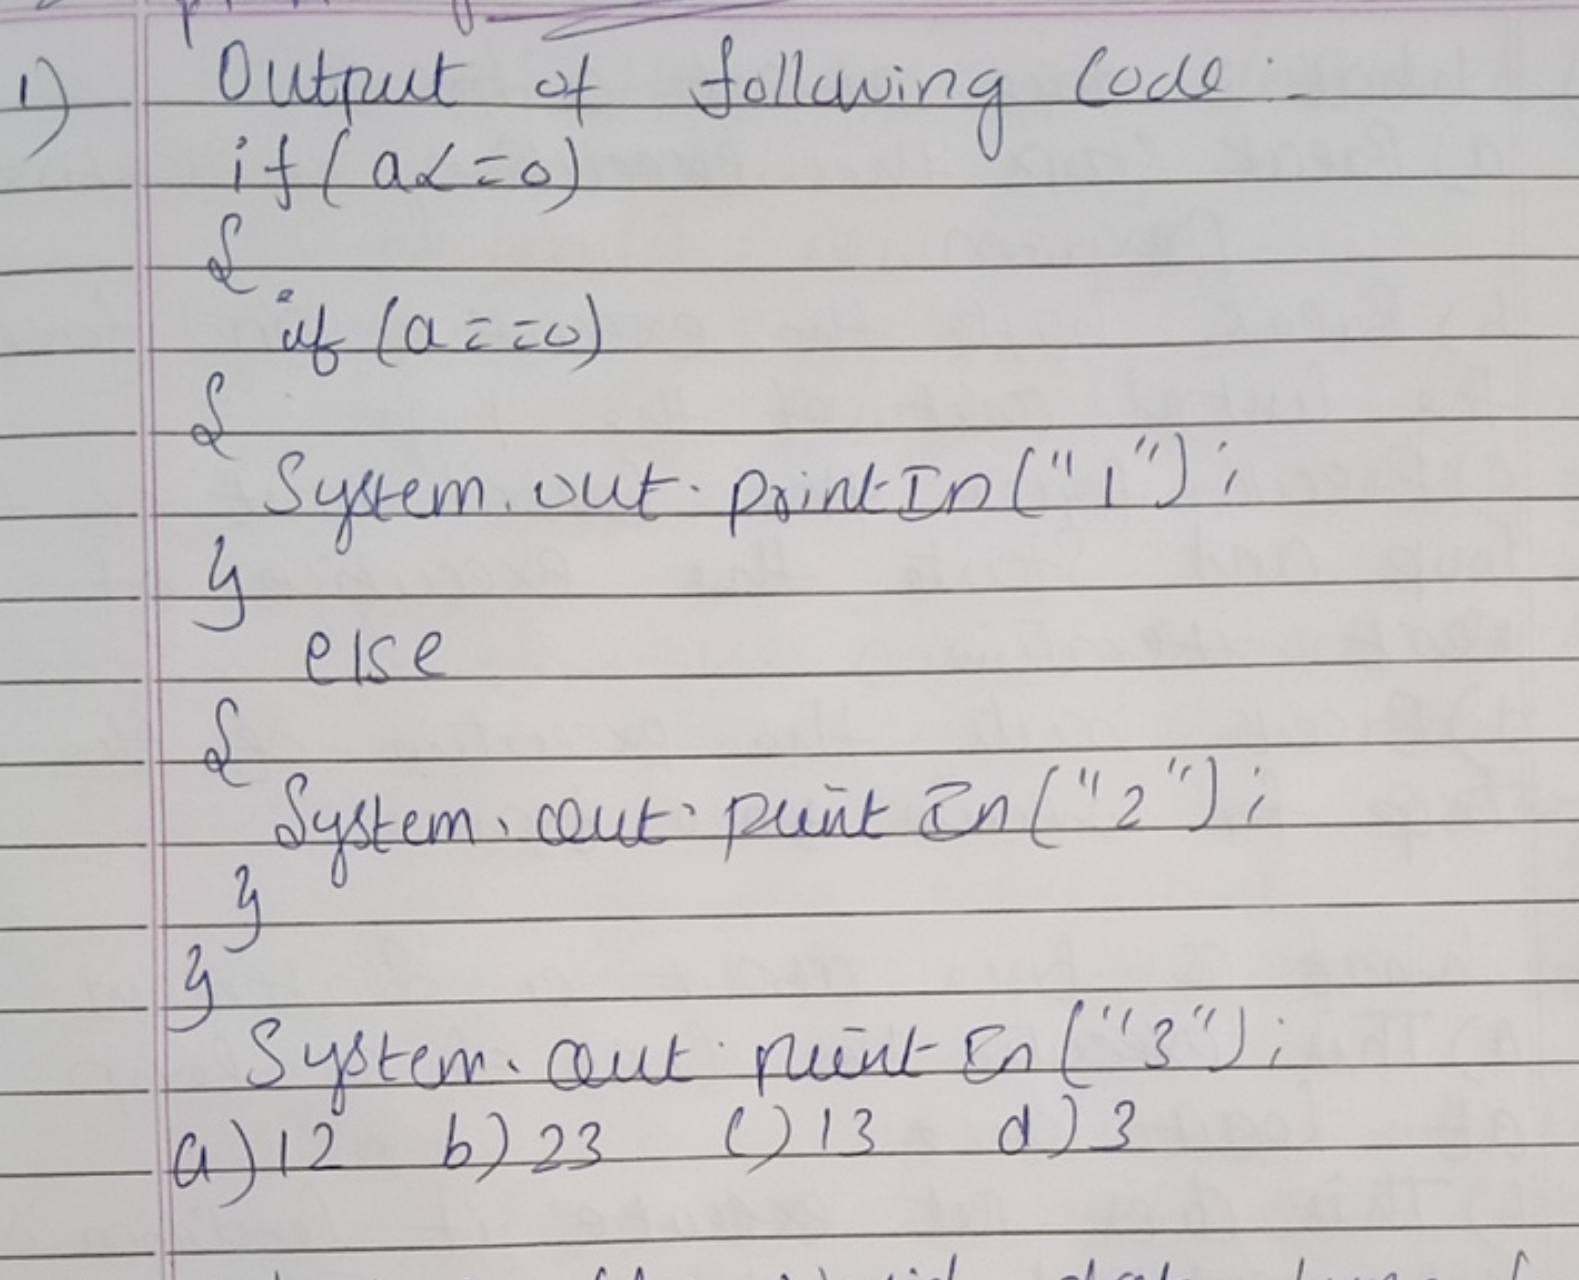 1) Output of following Code :-
if (a<=0)
{
if (a==0)
{
System.out.printIn("1");
}
else
{
System.out.printIn("2");
}
}
System.out.printIn("3");
a) 12 b) 23 c) 13 d) 3